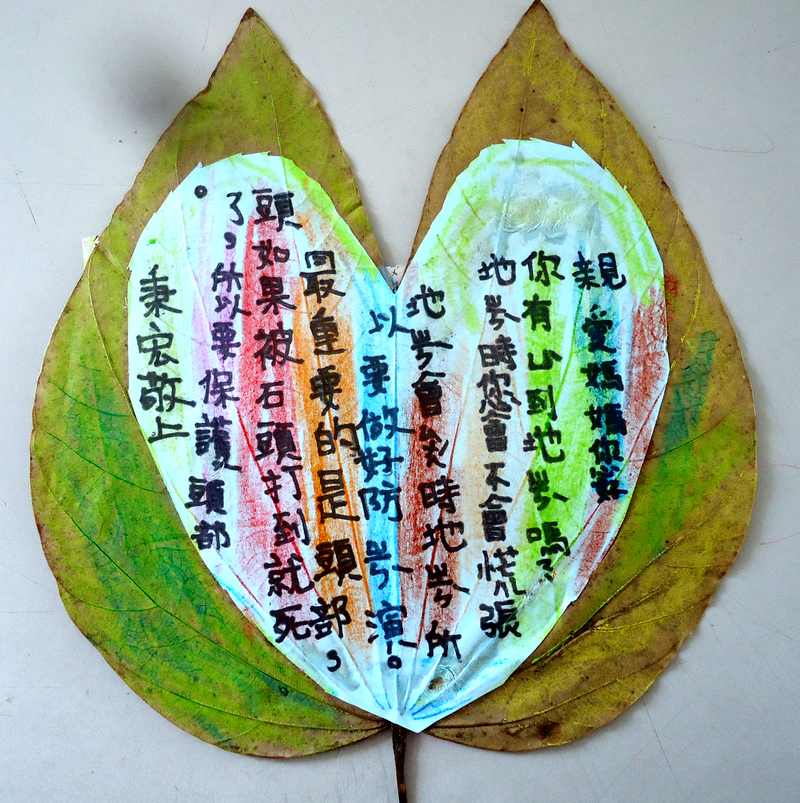 親愛媽媽你好
你有到地岑嗎
地岑時您會不會慌張
地岑會時地岑所
以要做好防岑演。
最重要的是頭部,
頭如果被石頭打到就死
了,所以要保護頭部
。
秉宏敬上